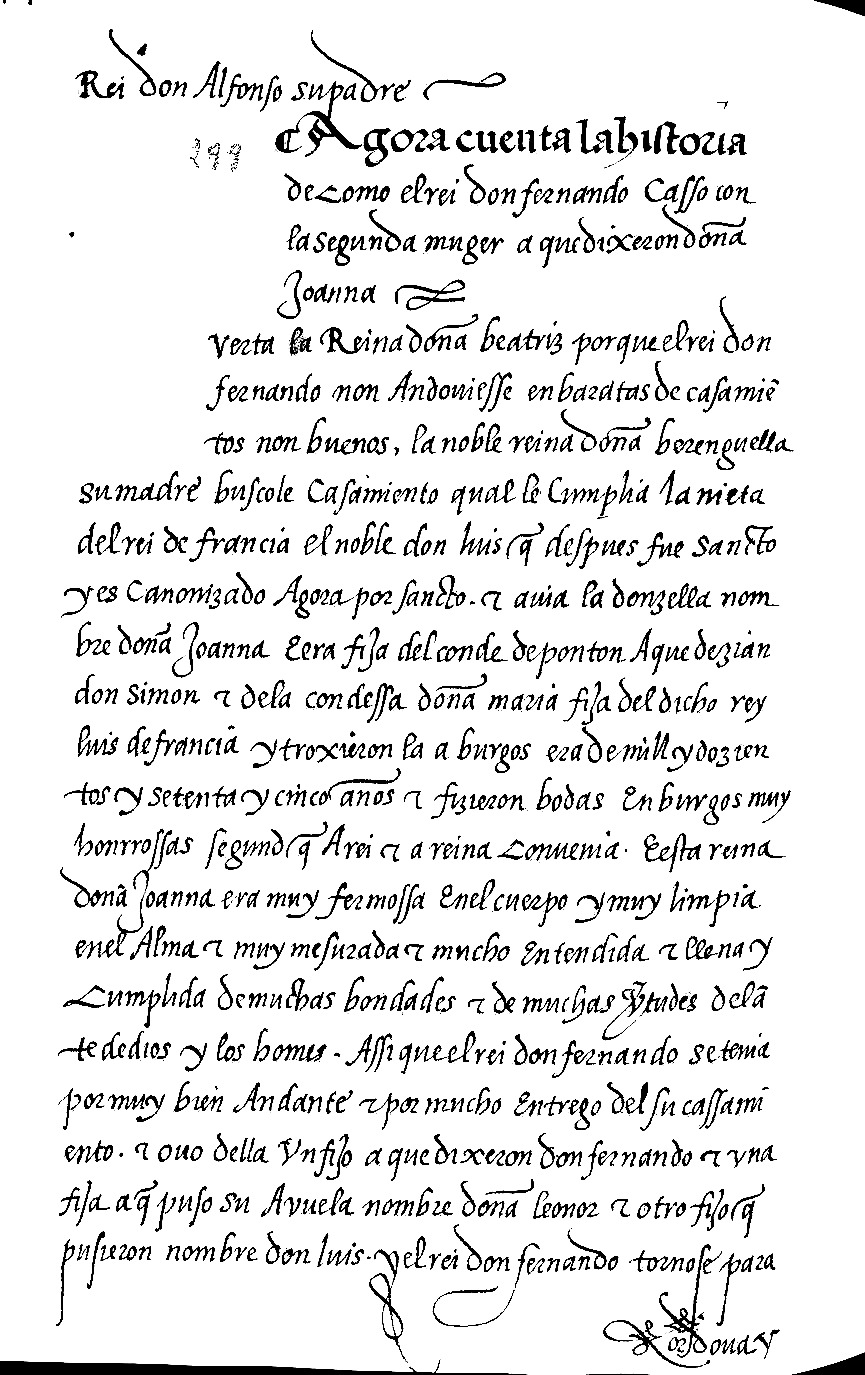 Rei don Alfonso su padre
Agora cuenta la historia
299
de como el rei don fernando Casso con
la segunda muger a que dixeron doña
Joanna
verta la Reina doña beatriz porque el rei don
fernando non Andouiesse en baratas de casamiē
tos non buenos, la noble reina doña berenguella
su madre buscole Casamiento qual le Cumplia la nieta
del rei de francia el noble don luis q̄ despues fue sancto
y es Canonizado Agora por sancto. τ auia la donzella nom
bre doña Joanna E era fija del conde de ponton A que dezian
don Simon τ de la condessa doña maria fija del dicho rey
luis de francia y troxieron la a burgos era de mill y dozien
tos y setenta y cinco años τ fizieron bodas En burgos muy
honrrossas segund q̄ A rei τ a reina Conuenia. E esta reina
doña Joanna era muy fermossa En el cuerpo y muy limpia
en el Alma τ muy mesurada τ mucho Entendida τ llena y
Cumplida de muchas bondades τ de muchas v̄tudes delā
te de dios y los homes. Assi que el rei don fernando se tenia
por muy bien Andante τ por mucho Entrego del su cassami
ento. τ ouo della Vn fijo a que dixeron don fernando τ vna
fija a q̄ puso su Avuela nombre doña leonor τ otro fijo q̄
pusieron nombre don luis. y el rei don fernando tornose para
Cordoua y